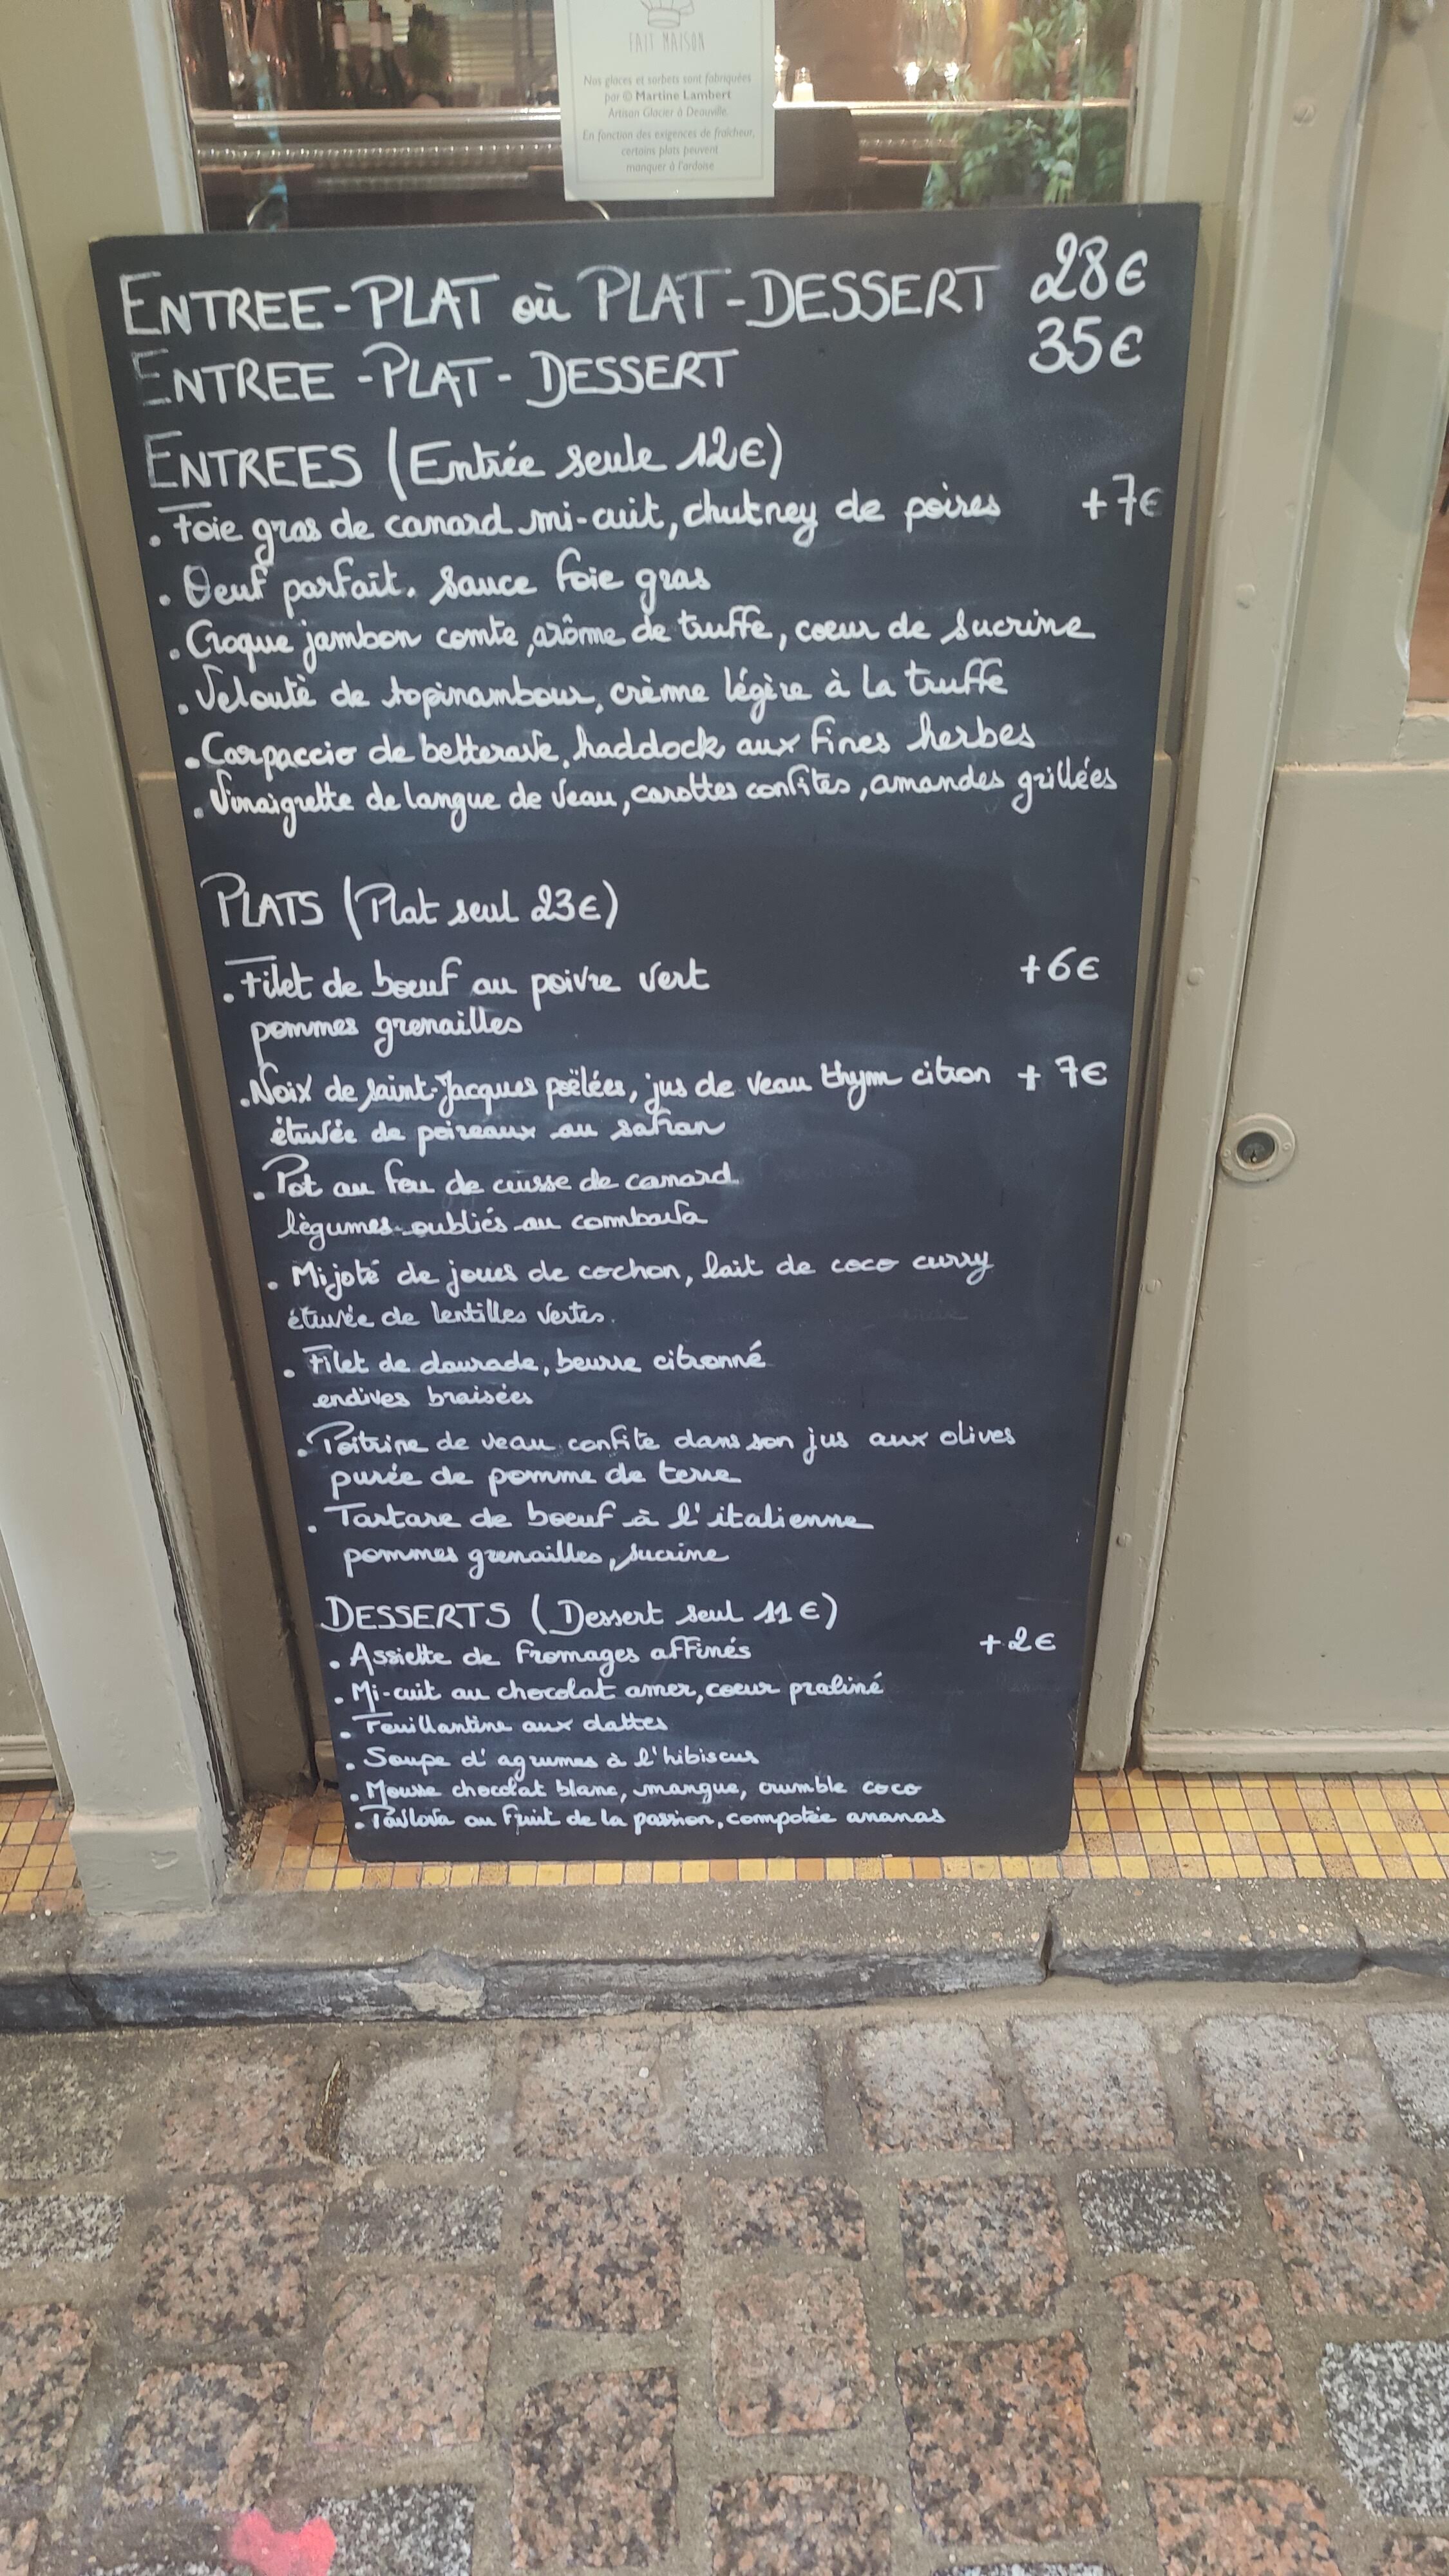 FAIT MAISON
Nos glaces et sorbets sont fabriquées
par © Martine Lambert
Artisan Glacier à Deauville.
En fonction des exigences de fraîcheur,
certains plats peuvent
manquer à l'ardoise
ENTREE-PLAT où PLAT-DESSERT 28€
ENTREE-PLAT-DESSERT 35€
ENTREES (Entrée seule 12€)
. Foie gras de canard mi-cuit, chutney de poires +7€
. Oeuf parfait. sauce foie gras
. Croque jambon comte, arôme de truffe, coeur de sucrine
. Velouté de topinambour, crème légère à la truffe
. Carpaccio de betterave, haddock aux fines herbes
. Vinaigrette de langue de veau, carottes confites, amandes grillées
PLATS (Plat seul 23€)
. Filet de boeuf au poivre vert +6€
pommes grenailles
. Noix de saint-Jacques poëlées, jus de veau thym citron + 7€
étuvée de poireaux au safran
. Pot au feu de cuisse de canard
légumes oubliés au combava
. Mijoté de joues de cochon, lait de coco curry
étuvée de lentilles vertes.
. Filet de daurade, beurre citronné
endives braisées
. Poitrine de veau confite dans son jus aux olives
purée de pomme de terre
. Tartare de boeuf à l'italienne
pommes grenailles, sucrine
DESSERTS (Dessert seul 11€)
. Assiette de fromages affinés +2€
. Mi-cuit au chocolat amer, coeur praliné
. Feuillantine aux dattes
. Soupe d'agrumes à l'hibiscus
. Mousse chocolat blanc, mangue, crumble coco
. Pavlova au fruit de la passion, compotée ananas